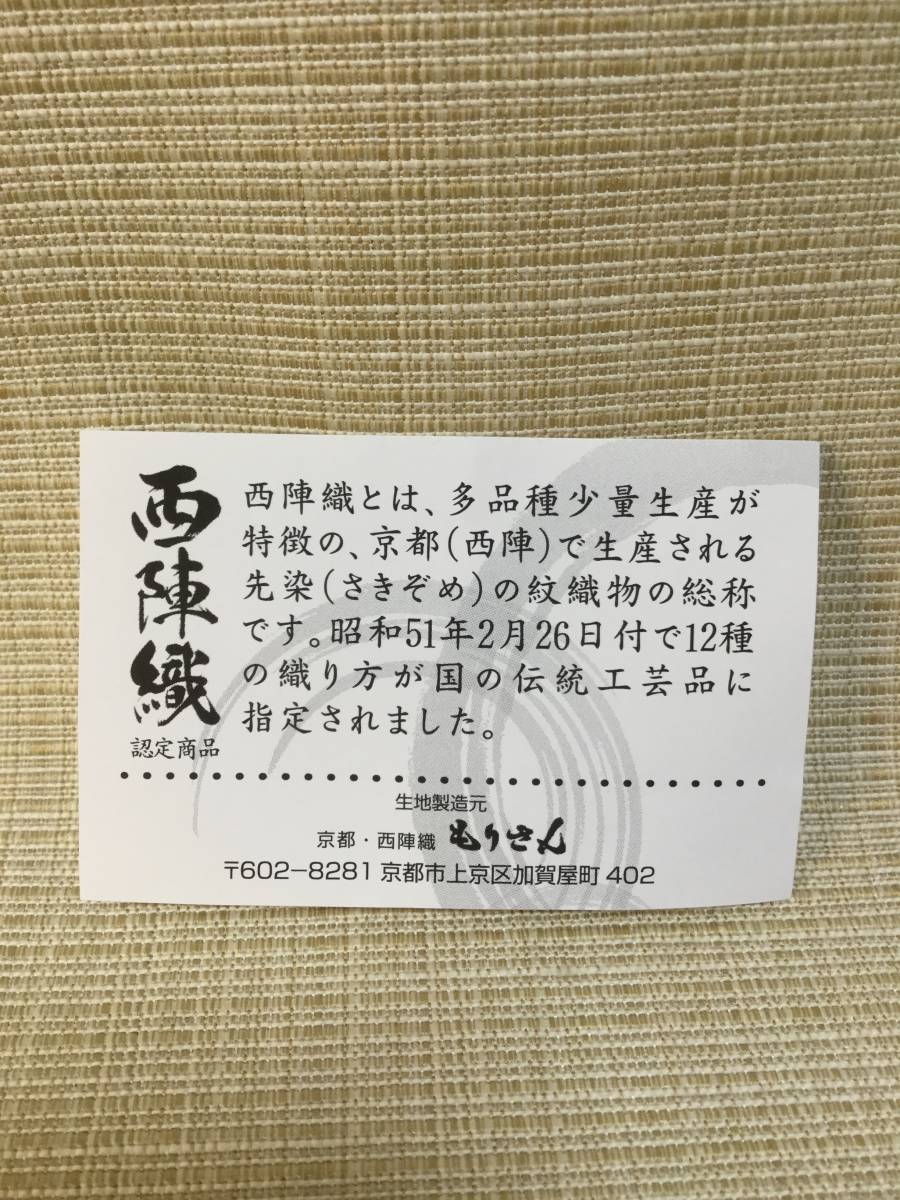 西陣織
認定商品
西陣織とは、多品種少量生産が
特徴の、京都(西陣)で生産される
先染(さきぞめ)の紋織物の総称
です。昭和51年2月26日付で12種
の織り方が国の伝統工芸品に
指定されました。
生地製造元
京都・西陣織 もりさん
〒602-8281 京都市上京区加賀屋町 402